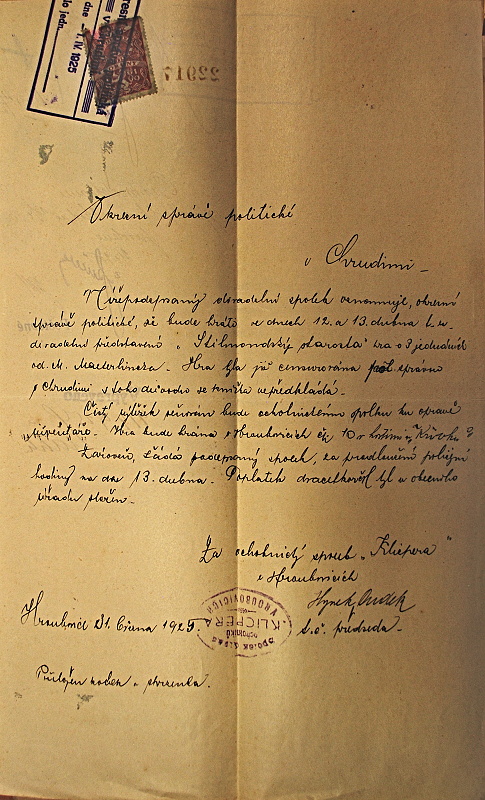 dne - 1. IV. 1925
22917
Okresní správě politické
v Chrudimi
Nížepodepsaný divadelní spolek oznamuje, okresní
správě politické, že bude hráti ve dnech 12. a 13. dubna t. r.
divadelní představení „Stilmondský starosta" hra o 3 jednáních
od M. Maeterlincka. Hra byla již censurována správou
v Chrudimi z toho důvodu se tamtéž nepředkládá.
Čistý výtěžek věnován bude ochotnickému spolku ku opravě
jeviště. Hra bude hrána v Hroubovicích čp. 10 v hostinci „
Zároveň, žádá podepsaný spolek, za prodloužení policejní
hodiny na den 13. dubna. Poplatek byl u obecního
úřadu složen.
Za ochotnický spolek „Klicpera"
v Hroubovicích
Hynek
t. č. předseda
Hroubovice 31. 1925
SPOLEK DIVAD.
ochotníků
KLICPERA
V HROUBOVICÍCH
Přiložen kolek a stvrzenka.